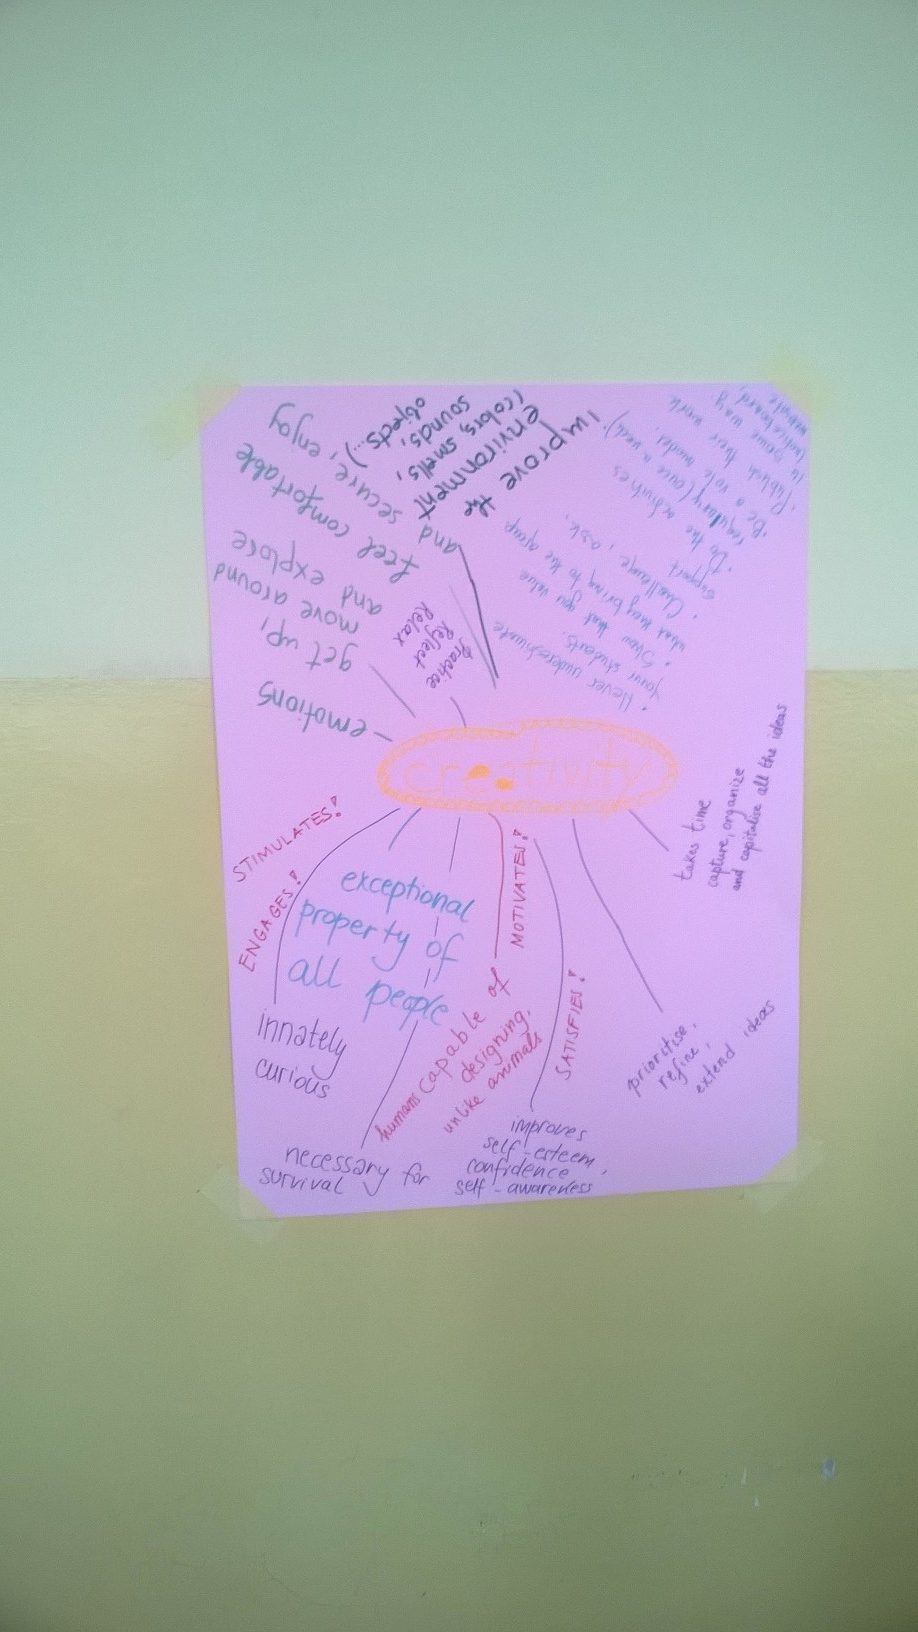 creativity
emotions
get up,
move around
and explore
feel comfortable
and secure, enjoy
Practice
Reflect
Relax
improve the
environment
(colors, smells,
sounds,
objects...)
• Never underestimate
your students.
• Show that you value
what they bring to the group
• Challenge, ask,
support
• Do the activities
regularly (once a week)
• Be a role model.
• Publish their work
in some way
takes time
capture, organize
and capitalize all the ideas
prioritise,
refine,
extend ideas
SATISFIES!
improves
self-esteem,
confidence,
self-awareness
MOTIVATES!
humans capable of
designing,
unlike animals
necessary for
survival
exceptional
property of
all people
STIMULATES!
ENGAGES!
innately
curious